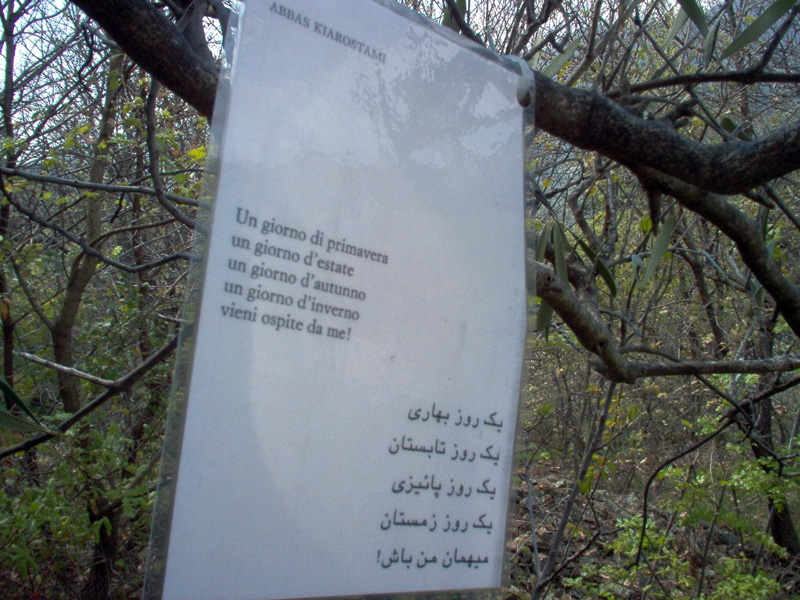 ABBAS KIAROSTAMI
Un giorno di primavera
un giorno d'estate
un giorno d'autunno
un giorno d'inverno
vieni ospite da me!
یک روز بهاری
یک روز تابستان
یک روز پائیزی
یک روز زمستان
میهمان من باش!